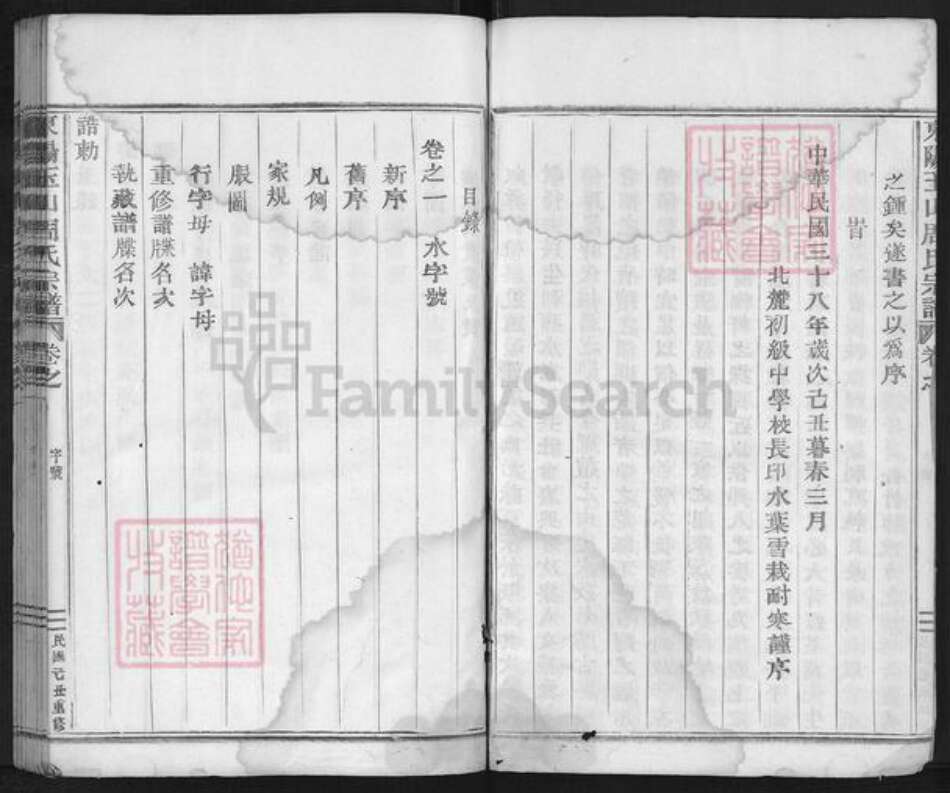 東陽玉山周氏宗譜
之鍾矣遂書之以爲序
旹
中華民國三十八年歲次己丑暮春三月
北麓初級中學校長印水葉雪栽耐寒謹序
目錄
卷之一 水字號
新序
舊序
凡例
家規
服圖
行字母 諱字母
重修譜牒名次
執藏譜牒名次
誥勅
東陽玉山周氏宗譜 卷之 字號 民國己丑重修
譜學會
收藏
FamilySearch